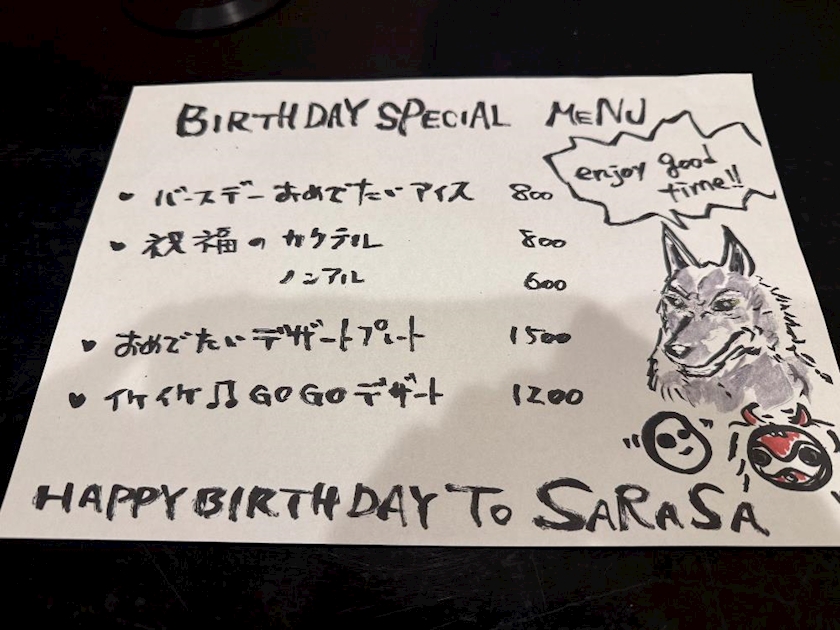 BIRTHDAY SPECIAL MENU
enjoy good
time!!
♥ バースデーおめでたいアイス 800
♥ 祝福のカクテル 800
ノンアル 600
♥ おめでたいデザートプレート 1500
♥ イケイケ♫GOGOデザート 1200
HAPPY BIRTHDAY To SARASA